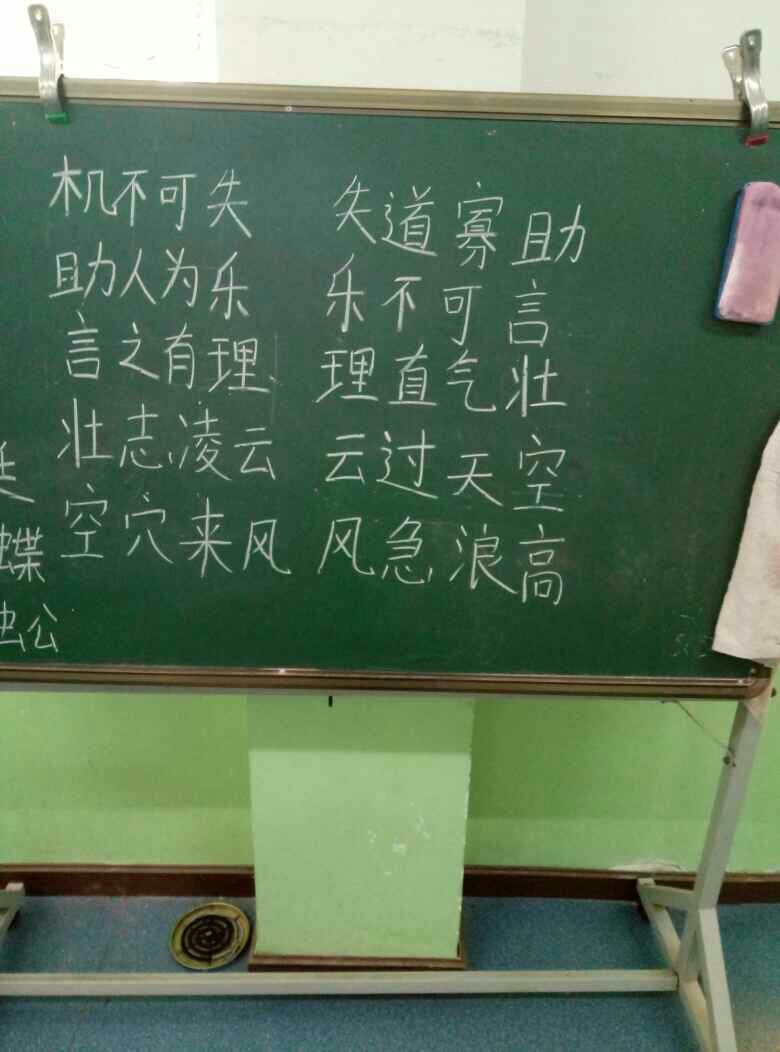 机不可失 失道寡助
助人为乐 乐不可言
言之有理 理直气壮
壮志凌云 云过天空
空穴来风 风急浪高
蝶
公